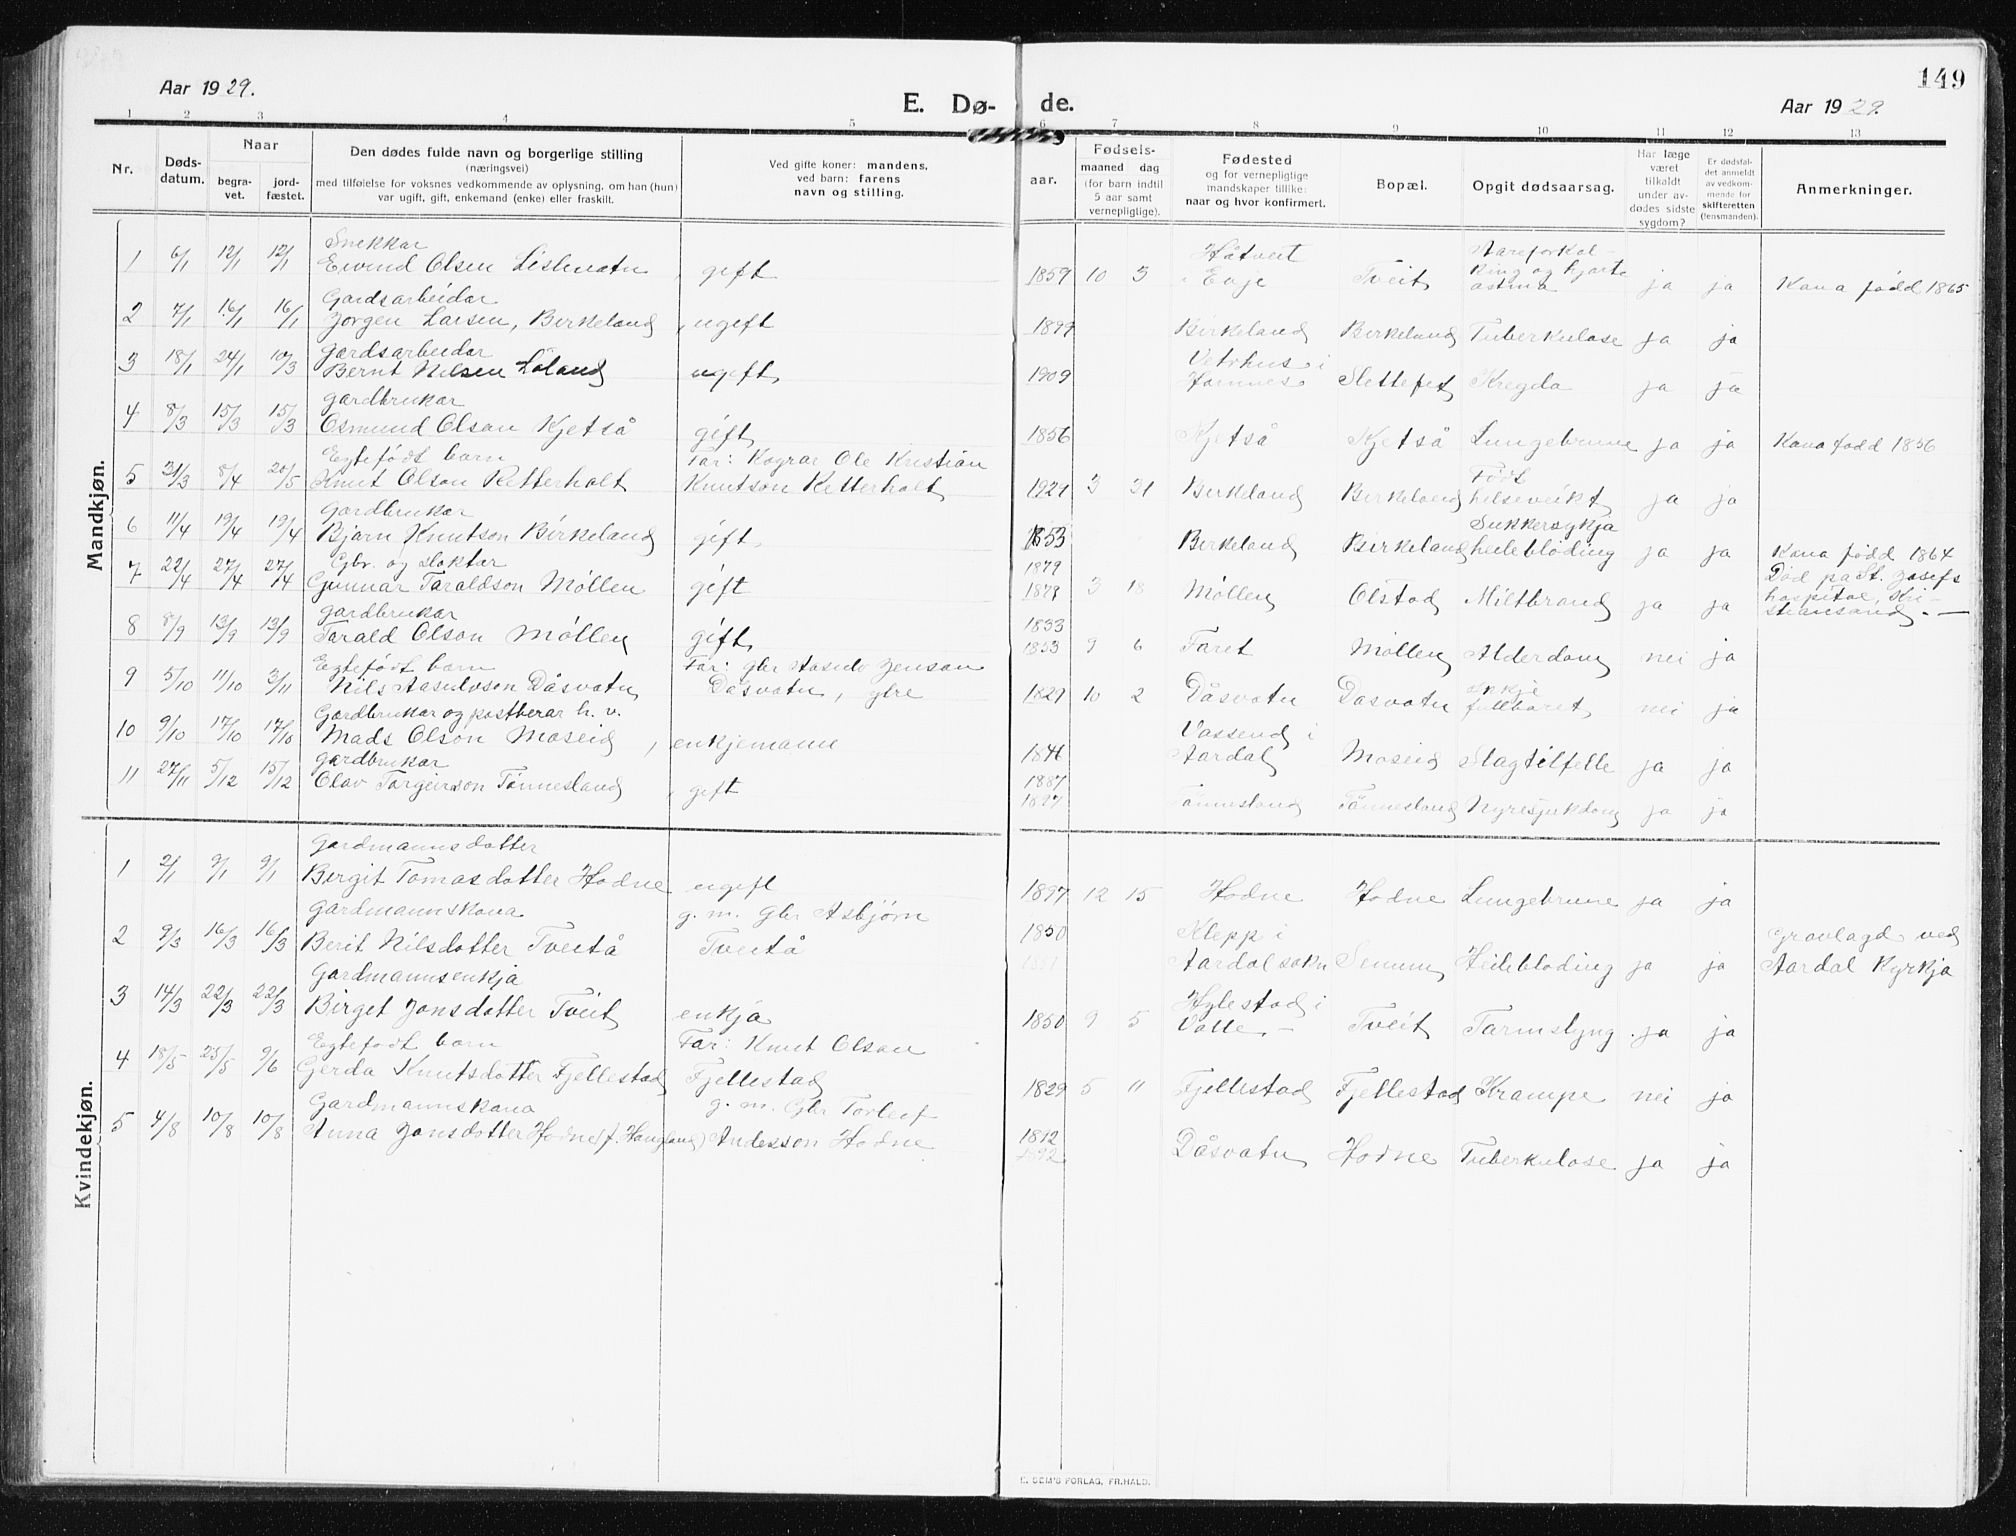 149
Aar 1929.
E. Dø- de.
Aar 1929.
1 2 3 4 5 6 7 8 9 10 11 12 13
Nr. Døds-datum. Naar begra-vet. jord-fæstet.
Den dødes fulde navn og borgerlige stilling (næringsvei) med tilføielse for voksnes vedkommende av oplysning, om han (hun) var ugift, gift, enkemand (enke) eller fraskilt.
Ved gifte koner: mandens, ved barn: farens navn og stilling.
Fødsels- aar. maaned dag (for barn indtil 5 aar samt vernepligtige).
Fødested og for vernepligtige mandskaper tillike: naar og hvor konfirmert.
Bopæl.
Opgit dødsaarsag.
Har læge været tilkaldt under av-dødes sidste sygdom?
Er dødsfal-det anmeldt av vedkom-mende for skifteretten (lensmanden).
Anmerkninger.
Mandkjøn.
Snekkar Håtveit Aareforkal-
1 6/1 12/1 12/1 Eivind Olsen Lislevatn, gift 1859 10 5 i Evje Tveit king og hjarte astma ja ja Kona fødd 1865
Gardsarbeidar
2 7/1 16/1 16/1 Jørgen Larsen, Birkeland, ugift 1899 Birkeland Birkeland Tuberkulose ja ja
Gardsarbeidar Vetrhus i
3 18/1 24/1 10/3 Bernt Nilsen Løland ugift 1909 Hornnes Slettefet Kregda ja ja
Gardbrukar
4 8/3 15/3 15/3 Osmund Olson Kjetså gift 1856 Kjetså Kjetså Lungebrune ja ja Kona fødd 1856
Egtefødt barn Far: Ole Kristian Født
5 31/3 8/4 20/5 Knut Olson Ketterholt Knutson Ketterholt 1929 3 21 Birkeland Birkeland helseveikt ja ja
Gardbrukar Sukkersykja
6 11/4 19/4 19/4 Bjørn Knutson Birkeland gift 1853 Birkeland Birkeland heilebløding ja ja Kona fødd 1864
Gbr. og slaktar 1879 Død på St. Josefs
7 22/4 27/4 27/4 Gunnar Taraldson Møllen gift 1879 3 18 Møllen Olstad Miltbrand ja ja hospital, Kri-stiansand.
Gardbrukar 1833
8 8/9 13/9 13/9 Tarald Olson Møllen gift 1833 9 6 Faret Møllen Alderdom nei ja
Egtefødt barn Far: gbr Aasulv Jenson
9 5/10 11/10 3/11 Nils Aasulvson Dåsvatn Dåsvatn, 1829 10 2 Dåsvatn Dåsvatn Inkje fullbaret nei ja
Gardbrukar og postberar h. v. Vassend i
10 9/10 17/10 17/10 Mads Olson Moseid, enkjemann 1846 Aardal Moseid Slagtilfelle ja ja
Gardbrukar 1887
11 27/11 5/12 15/12 Olav Torgeirson Tønnesland, gift Tønnesland Tønnesland Nyresjukdom ja ja
Kvindekjøn.
Gardmannsdotter
1 2/1 9/1 9/1 Birgit Tomasdotter Hodne ugift 1897 12 15 Hodne Hodne Lungebrune ja ja
Gardmannskona g. m. Gbr Asbjørn 1850 Klepp i Gravlagd ved
2 9/3 16/3 16/3 Berit Nilsdotter Tveitå Tveitå Aardal sokn Senum Heilebløding ja ja Aardal Kyrkja
Gardmannsenkja Hylestad i
3 14/3 22/3 22/3 Birget Jonsdotter Tveit enkja 1850 9 5 Valle Tveit Tarmslyng ja ja
Egtefødt barn Far: Knut Olson
4 18/5 25/5 9/6 Gerda Knutsdotter Fjellestad Fjellestad 1829 5 11 Fjellestad Fjellestad Krampe nei ja
Gardmannskona g. m. Gbr Torleif 1892
5 4/8 10/8 10/8 Anna Jonsdotter Hodne (f. Haugland) Andersson Hodne 1892 Dåsvatn Hodne Tuberkulose ja ja
E. SEM'S FORLAG, FR.HALD.